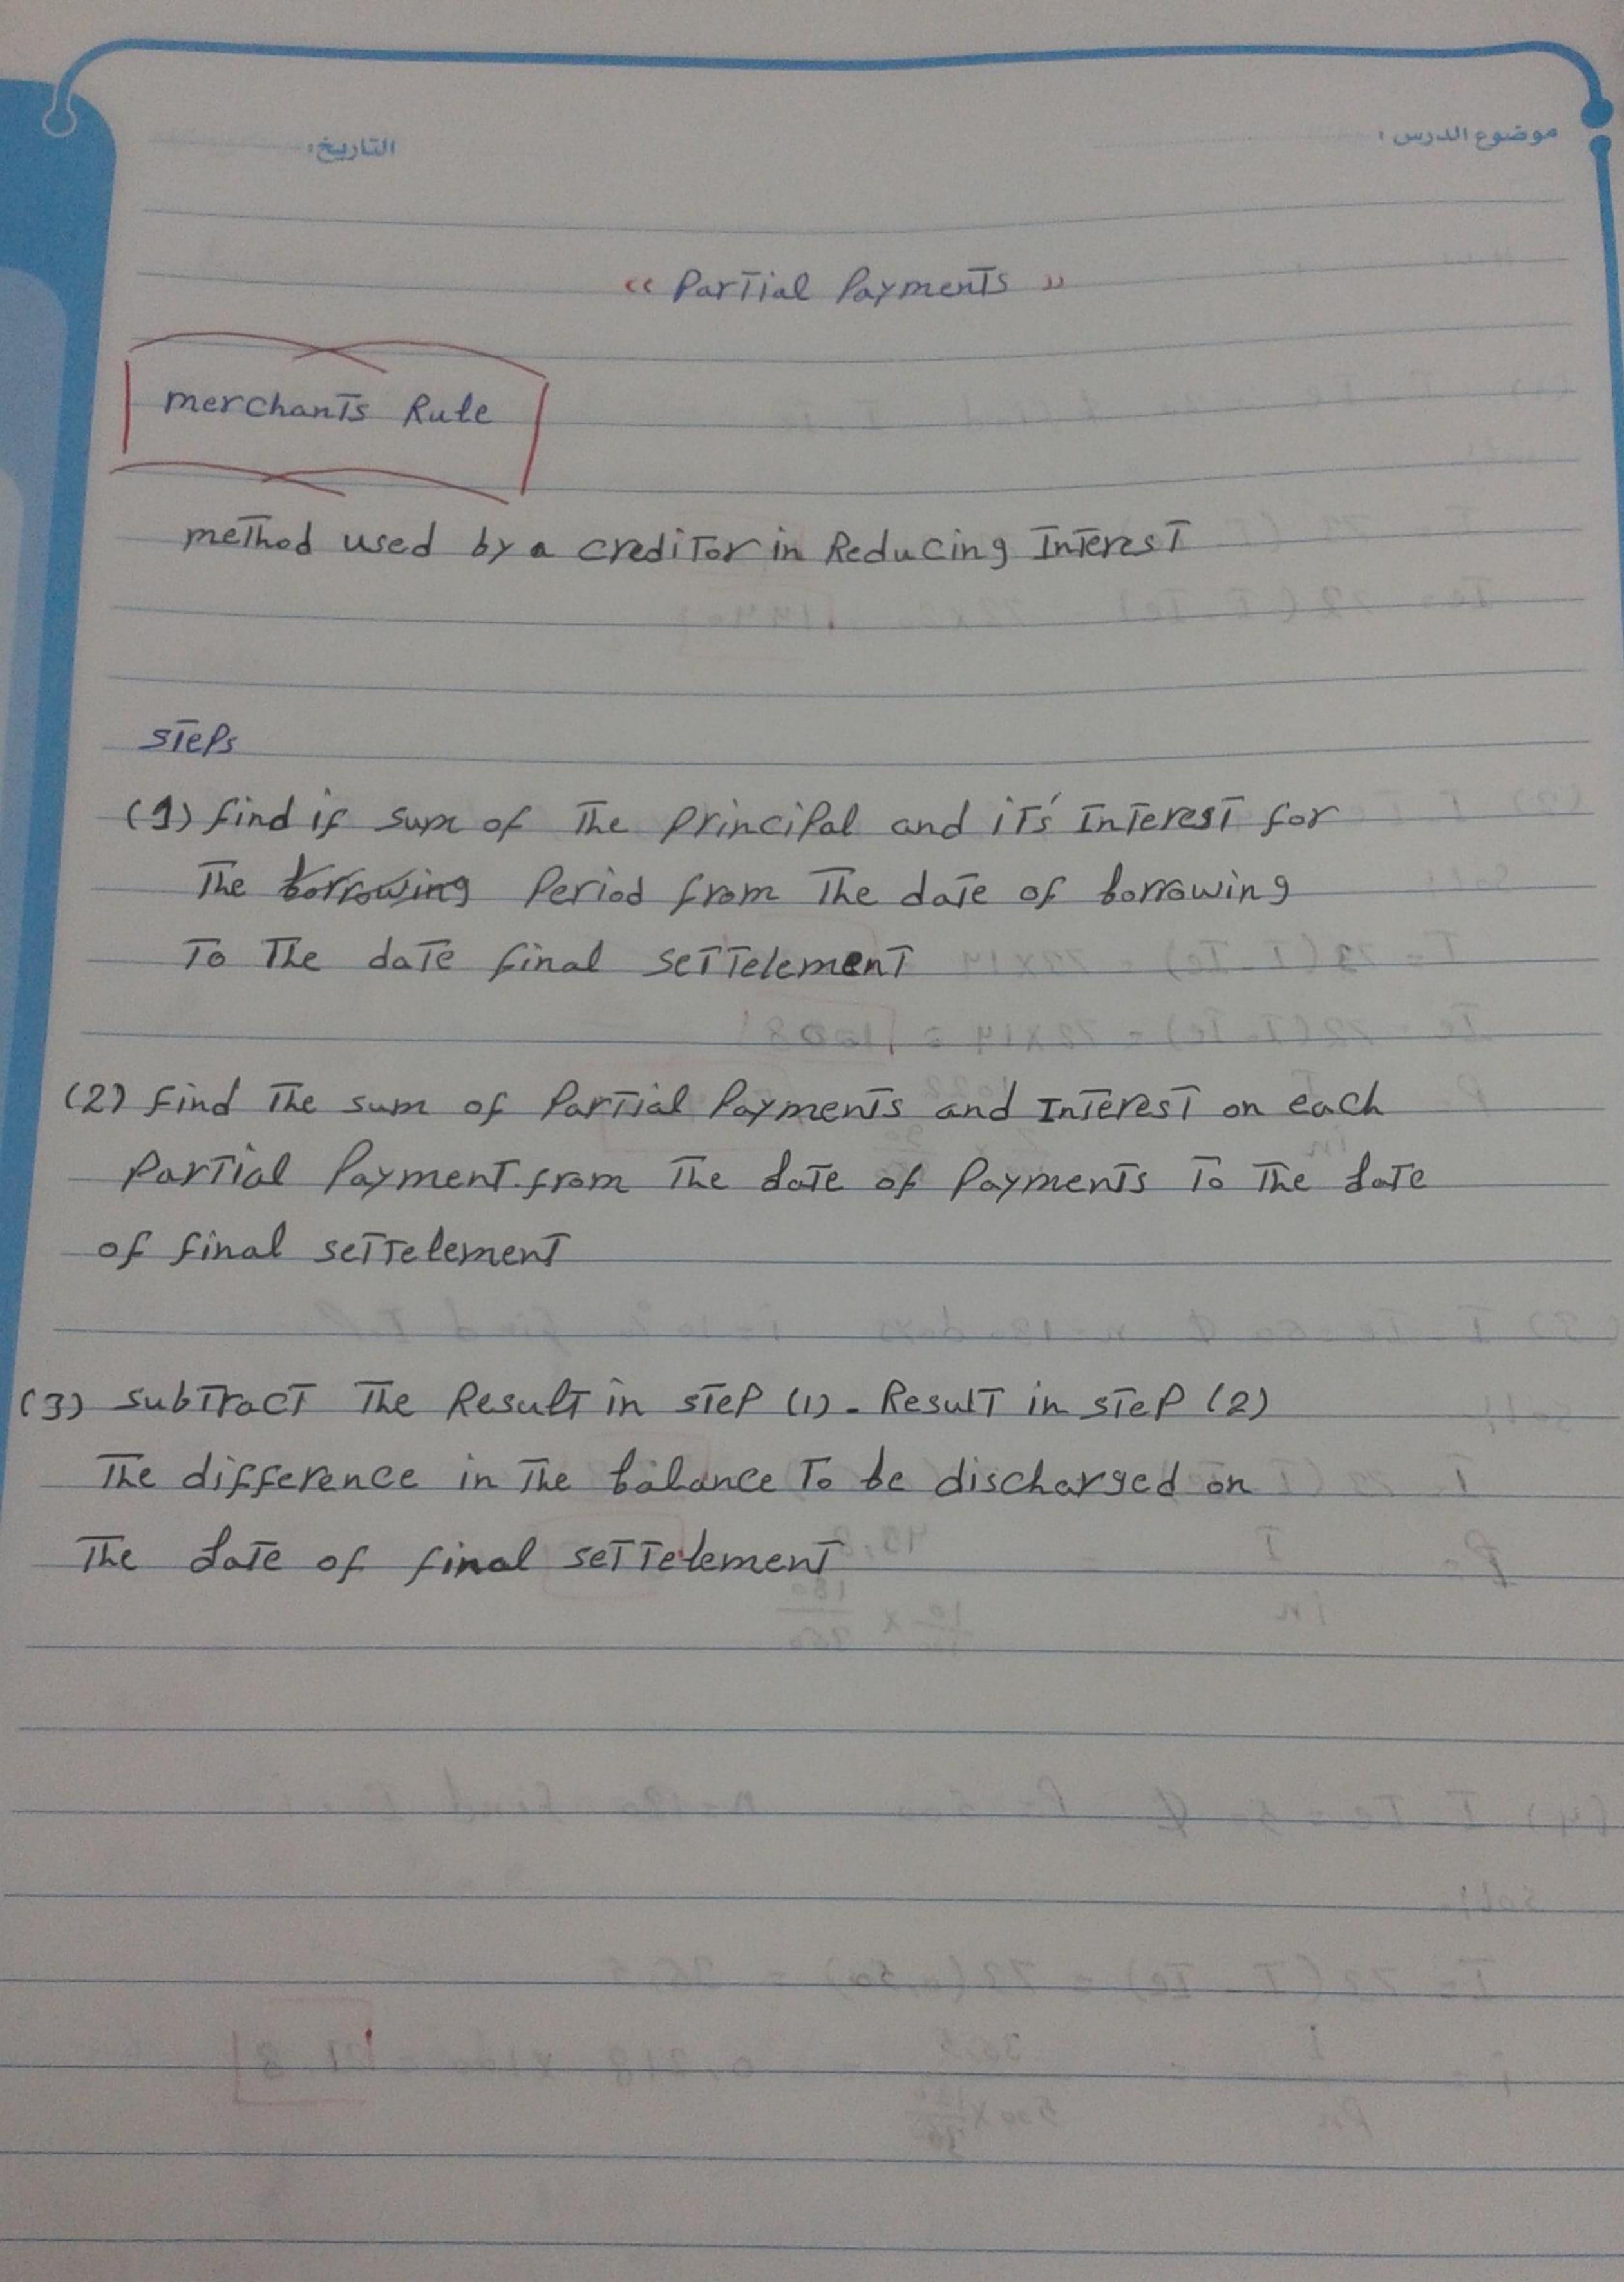 موضوع الدرس :
التاريخ:
« Partial Payments »
merchants Rule
method used by a creditor in Reducing Interest
steps
(1) find if sum of The principal and it's Interest for
The borrowing Period from The date of borrowing
To The date final settelement
(2) find The sum of Partial Payments and Interest on each
Partial Payment. from The date of Payments To The date
of final settelement
(3) subtract The Result in step (1) - Result in step (2)
The difference in The balance To be discharged on
The date of final settelement